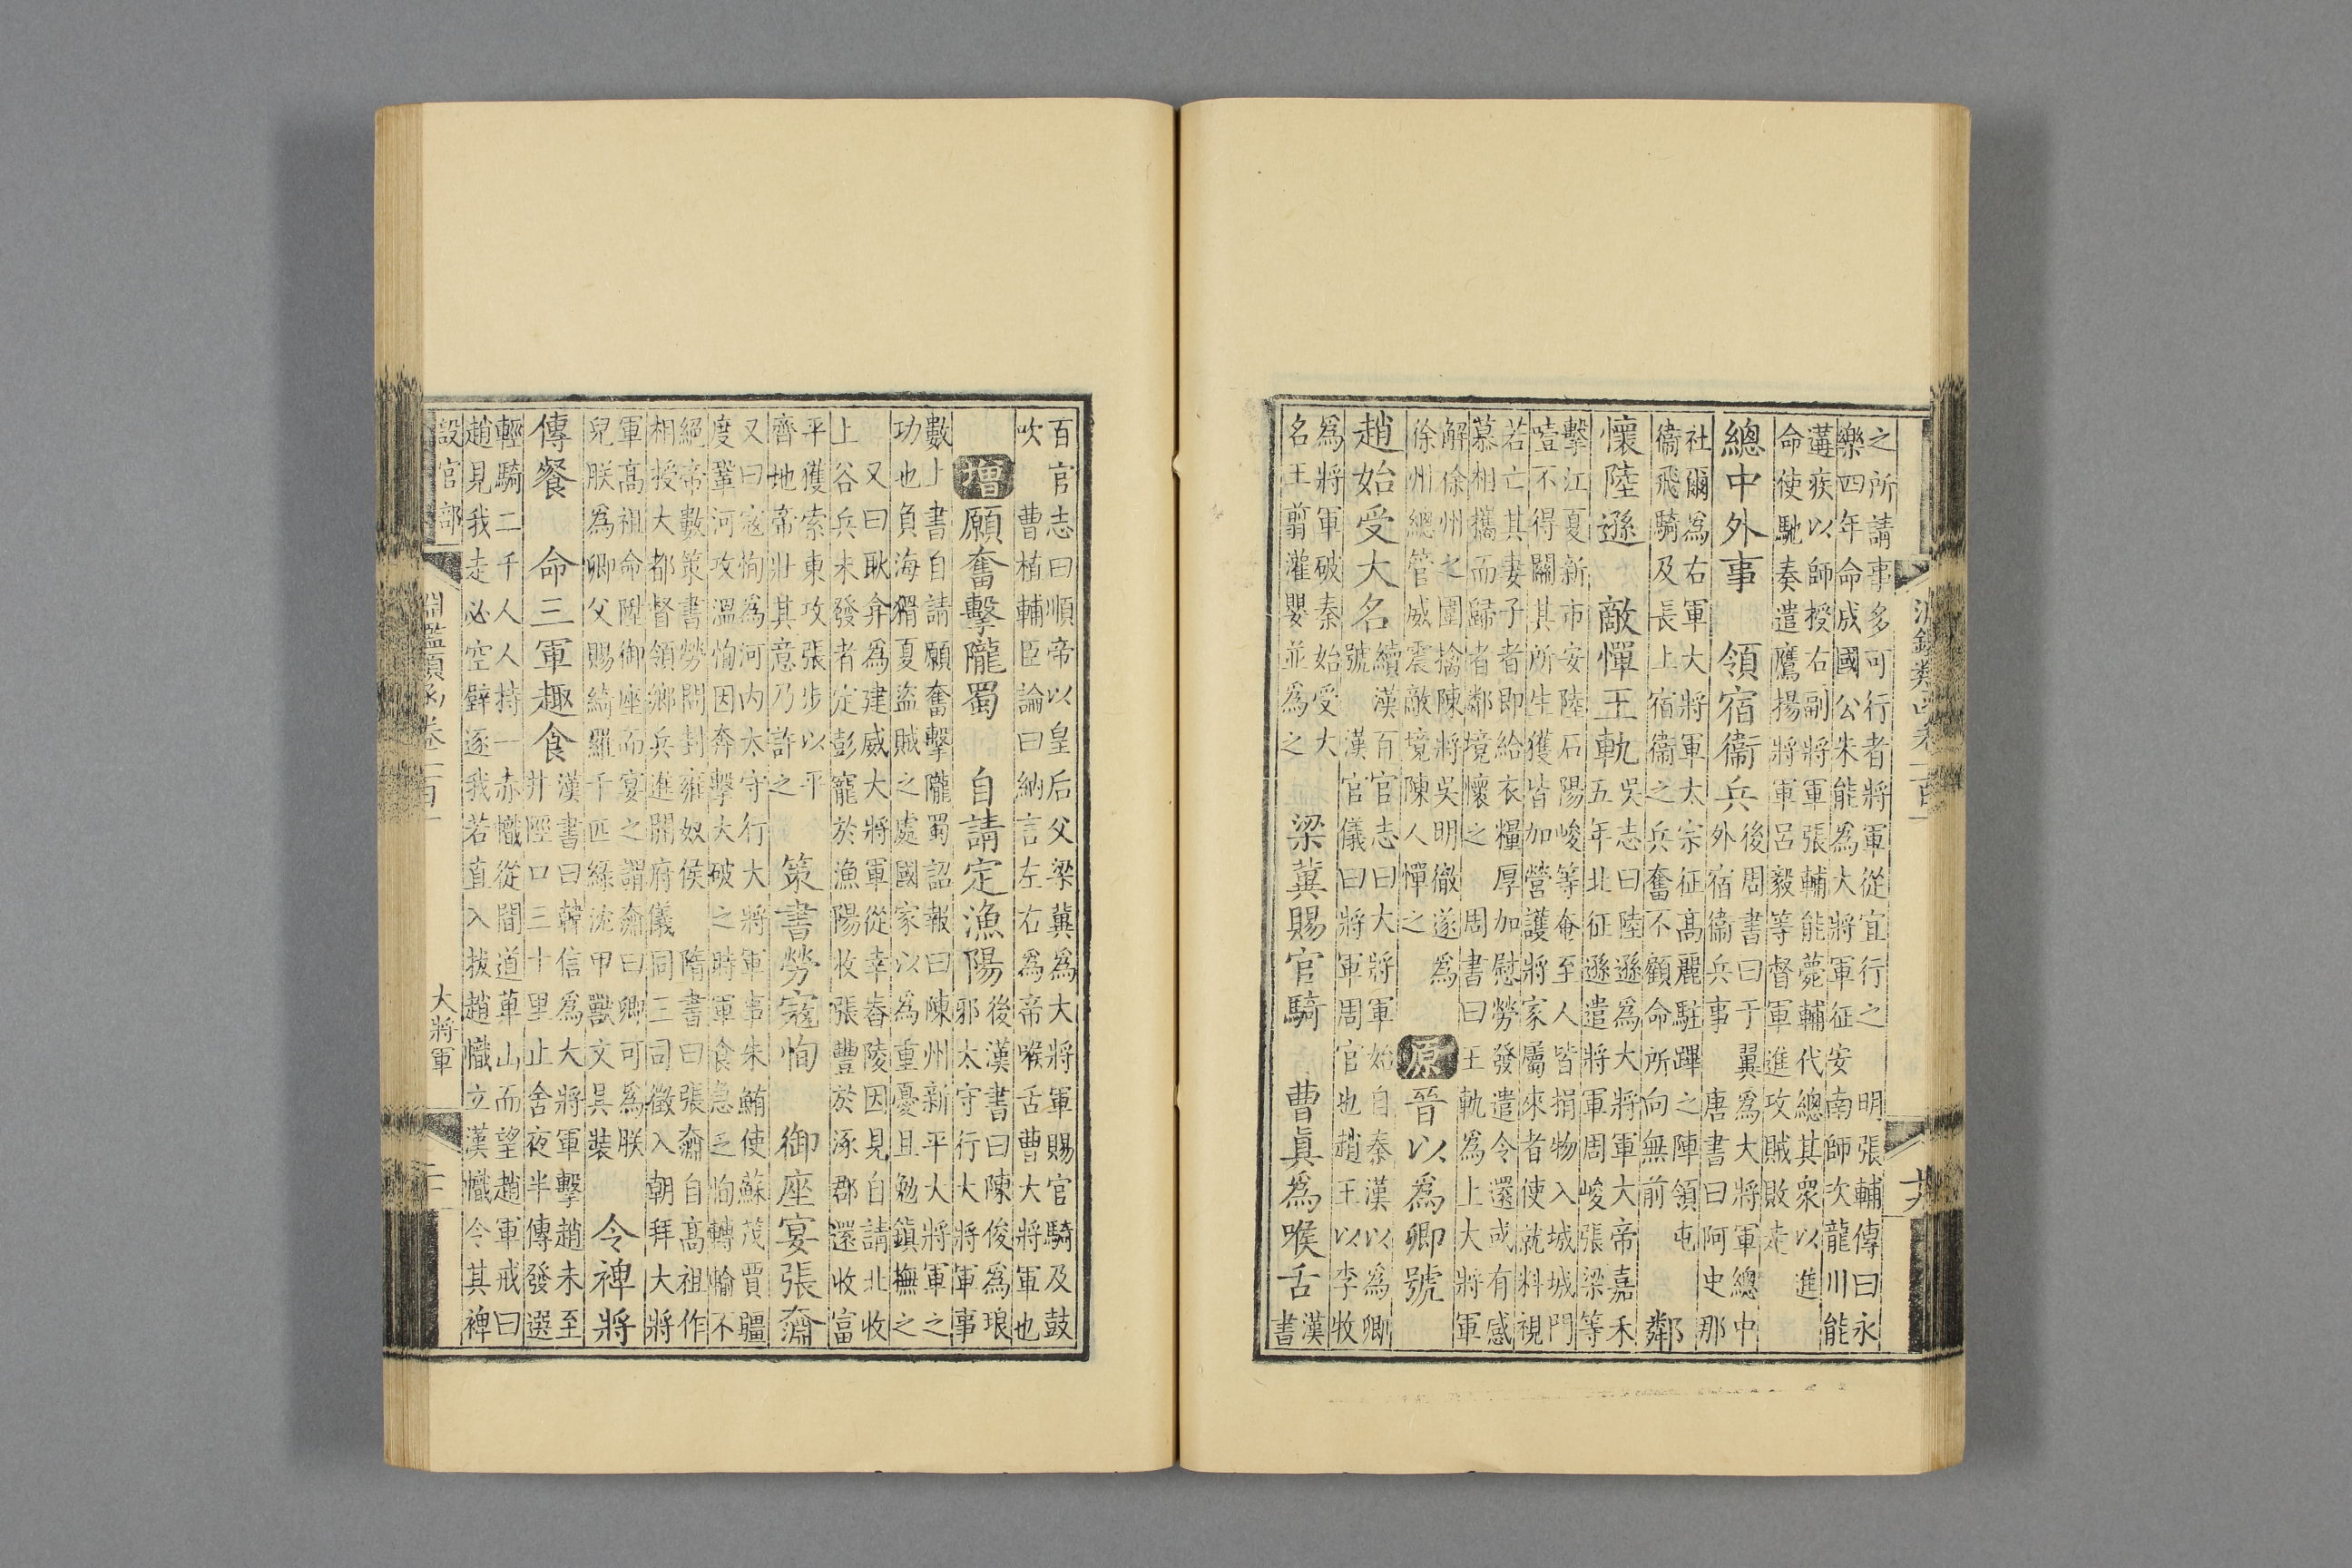 之所請事多可行者將軍從宜行之 明張輔傳曰永
樂四年命成國公朱能爲大將軍征安南師次龍川能
遘疾以師授右副將軍張輔能薨輔代總其衆以進
命使馳奏遣鷹揚將軍呂毅等督軍進攻賊敗走
總中外事 領宿衞兵
後周書曰于翼爲大將軍總中
外宿衞兵事 唐書曰阿史那
社爾爲右軍大將軍太宗征高麗駐蹕之陣領屯
衞飛騎及長上宿衞之兵奮不顧命所向無前
鄰
懷陸遜 敵憚王軌
吳志曰陸遜爲大將軍大帝嘉禾
五年北征遜遣將軍周峻張梁等
擊江夏新市安陸石陽峻等奄至人皆捐物入城城門
噎不得關其所生獲皆加營護將家屬來者使就料視
若亡其妻子者即給衣糧厚加慰勞發遣令還或有感
慕相攜而歸者鄰境懷之 周書曰王軌爲上大將軍
解徐州之圍擒陳將吳明徹遂爲
徐州總管威震敵境陳人憚之
原 晉以爲卿號
趙始受大名
續漢百官志曰大將軍始自秦漢以爲卿
號 漢官儀曰將軍周官也趙王以李牧
爲將軍破秦始受大
名王翦灌嬰並爲之
梁冀賜官騎 曹眞爲喉舌
漢
書
百官志曰順帝以皇后父梁冀爲大將軍賜官騎及鼓
吹 曹植輔臣論曰納言左右爲帝喉舌曹大將軍也
增 願奮擊隴蜀 自請定漁陽
後漢書曰陳俊爲琅
邪太守行大將軍事
數上書自請願奮擊隴蜀詔報曰陳州新平大將軍之
功也負海猾夏盜賊之處國家以爲重憂且勉鎮撫之
又曰耿弇爲建威大將軍從幸舂陵因見自請北收
上谷兵未發者定彭寵於漁陽收張豐於涿郡還收富
平獲索東攻張步以平
齊地帝壯其意乃許之
策書勞寇恂 御座宴張奫
又曰寇恂爲河内太守行大將軍事朱鮪使蘇茂賈疆
度鞏河攻溫恂因奔擊大破之時軍食急乏恂轉輸不
絕帝數策書勞問封雍奴侯 隋書曰張奫自高祖作
相授大都督領鄉兵進開府儀同三司徵入朝拜大將
軍高祖命陞御座而宴之謂奫曰卿可爲朕
兒朕爲卿父賜綺羅千匹綠沈甲獸文具裝
令裨將
傳餐 命三軍趣食
漢書曰韓信爲大將軍擊趙未至
井陘口三十里止舍夜半傳發選
輕騎二千人人持一赤幟從間道萆山而望趙軍戒曰
趙見我走必空壁逐我若直入拔趙幟立漢幟令其裨
設官部 淵鑑類函卷一百一 大將軍